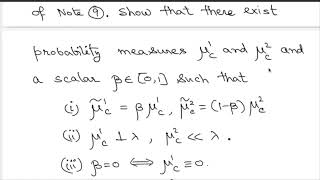 of Note ⑨. Show that there exist
probability measures μ_c^1 and μ_c^2 and
a scalar β∈[0,1] such that
(i) μ̃_c^1 = β μ_c^1, μ̃_c^2 = (1-β) μ_c^2
(ii) μ_c^1 ⊥ λ, μ_c^2 ≪ λ.
(iii) β=0 ⟺ μ_c^1 ≡ 0.